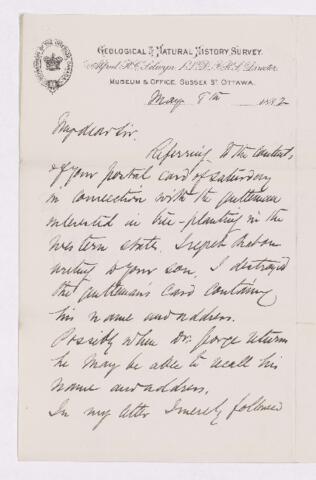 GEOLOGICAL & NATURAL HISTORY SURVEY.
Alfred R. C. Selwyn. LL.D. F.R.S. Director.
MUSEUM & OFFICE. SUSSEX ST. OTTAWA.
May 8th 1882
My dear Sir.
Referring to the contents
of your postal card of Saturday
in connection with the gentleman
interested in tree-planting in the
western state. I regret that on
writing to your son, I destroyed
the gentleman's card containing
his name and address.
Possibly when Dr. George returns
he may be able to recall his
name and address.
In my letter I merely followed